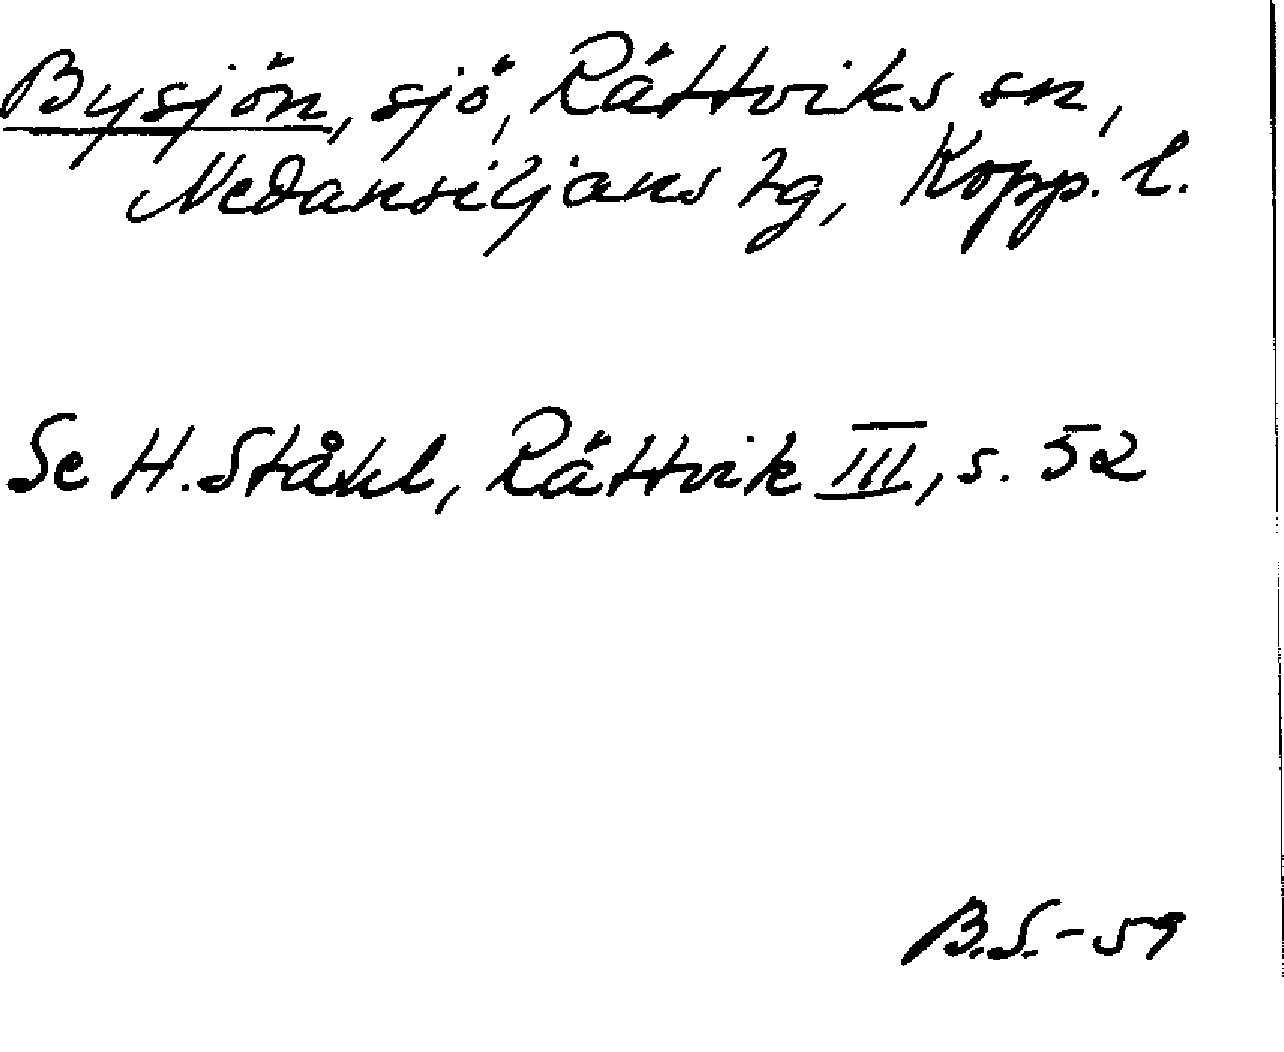 Bysjön, sjö, Rättviks sn,
Nedansiljans tg, Kopp. l.
Se H. Ståhl, Rättvik III, s. 52
B.S.-59